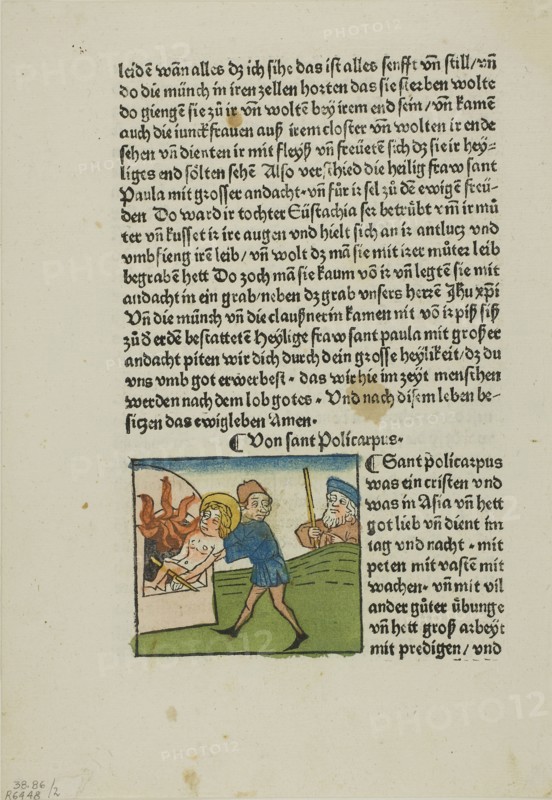 leidē wañ alles dz ich sihe das ist alles senfft vñ still/vñ
do die münch in iren zellen horten das sie sterben wolte
do giengē sie zů ir vñ woltē bey irem end sein/vñ kamē
auch die iunckfrauen auß irem closter vñ wolten ir ende
sehen vñ dienten ir mit fleyß vñ freüetē sich dz sie ir hey⸗
liges end sölten sehē Also verschied die heilig fraw sant
Paula mit grosser andacht⸱vñ für ir sel zů dē ewigē freü⸗
den Do ward ir tochter Eüstachia ser betrübt vm̄ ir mů
ter vñ kusset ir ire augen vnd hielt sich an ir antlucz vnd
vmbfieng irē leib/ vñ wolt dz mā sie mit irer můter leib
begrabē hett Do zoch mā sie kaum vō ir vñ legtē sie mit
andacht in ein grab/neben dz grab vnsers herrē Jhu xp̄i
Vñ die münch vñ die claußnerin kamen mit vō ir piß siß
zů d̄ erdē bestattetē Heylige fraw sant paula mit großer
andacht piten wir dich durch dein grosse heylikeit/dz du
vns vmb got erwerbest⸱ das wir hie im zeyt menschen
werden nach dem lob gotes⸱ Vnd nach disem leben be⸗
siczen das ewig leben Amen⸱
⸿ Von sant Policarpus⸱
⸿ Sant policarpus
was ein cristen vnd
was in Asia vñ hett
got lieb vñ dient im
tag vnd nacht⸱ mit
peten mit vastē mit
wachen⸱ vñ mit vil
ander gůter übunge
vñ hett groß arbeyt
mit predigen/ vnd
38.86/2
R6448
PHOTO12